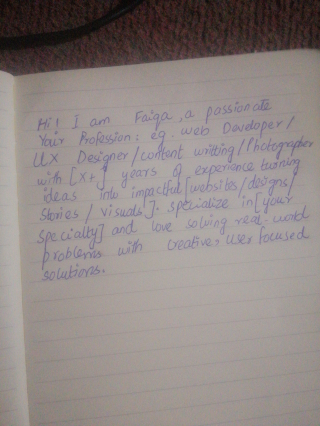 Hi! I am Faiqa, a passionate
Your Profession: eg. web Developer/
UX Designer/content writting/Photographer
with [X+] years of experience turning
ideas into impactful [websites/designs/
Stories / visuals]. specialize in [your
specialty] and love solving real. word
problems with creative, user focused
solutions.